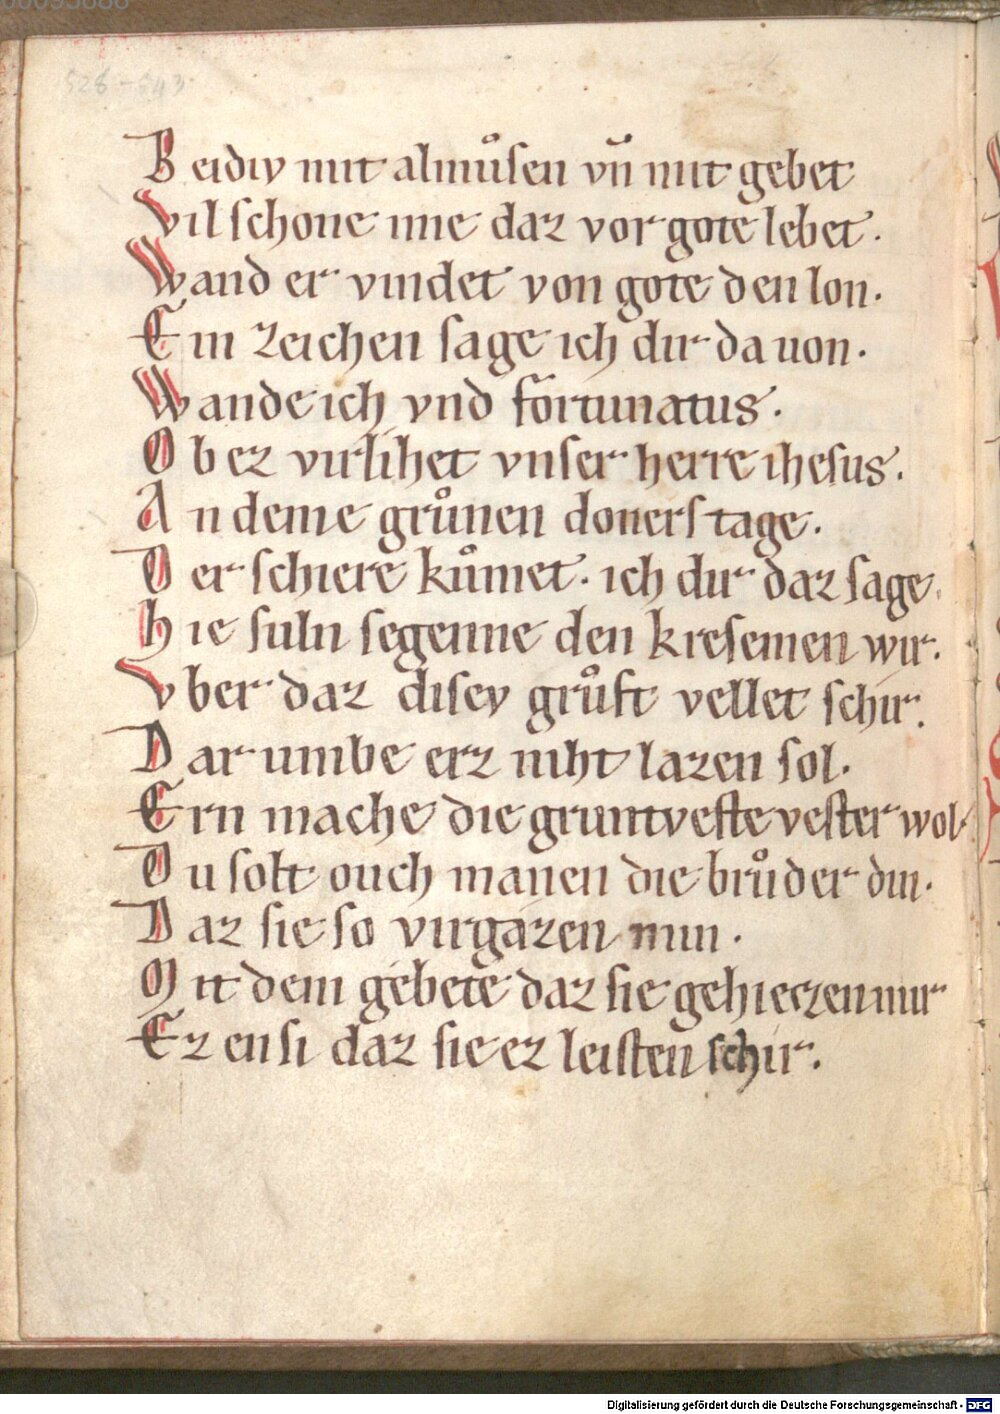 528-543
Beidiv mit almůsen vn̄ mit gebet
Vil schone ime daz vor gote lebet.
Wand er vindet von gote den lon.
Ein zeichen sage ich dir da uon.
Wande ich vnd fortunatus.
Ob ez virlihet vnser herre ihesus.
An deme grůnen donerstage.
Der schiere kůmet. ich dir daz sage.
Hie suln segenne den kresemen wir.
Vber daz disev grůft vellet schir.
Dar umbe erz niht lazen sol.
Ern mache die gruntveste vester wol.
Du solt ouch manen die brůder din.
Daz sie so virgazen min.
Mit dem gebete daz sie gehiezen mir
Ez en si daz sie ez leisten schir.
Digitalisierung gefördert durch die Deutsche Forschungsgemeinschaft - DFG